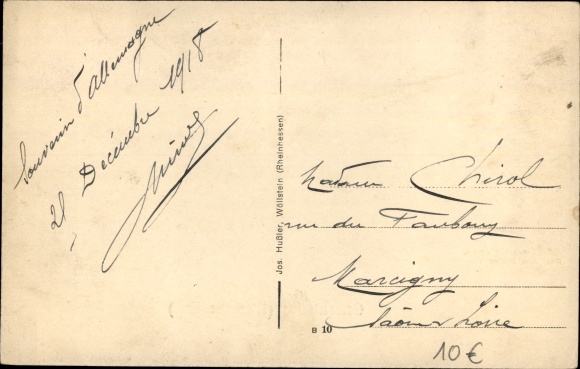 Souvenir d'Allemagne
21 Décembre 1918
Jos. Hußler, Wöllstein (Rheinhessen)
Madame Chirol
rue du Faubourg
Marcigny
Saône & Loire
B 10
10 €